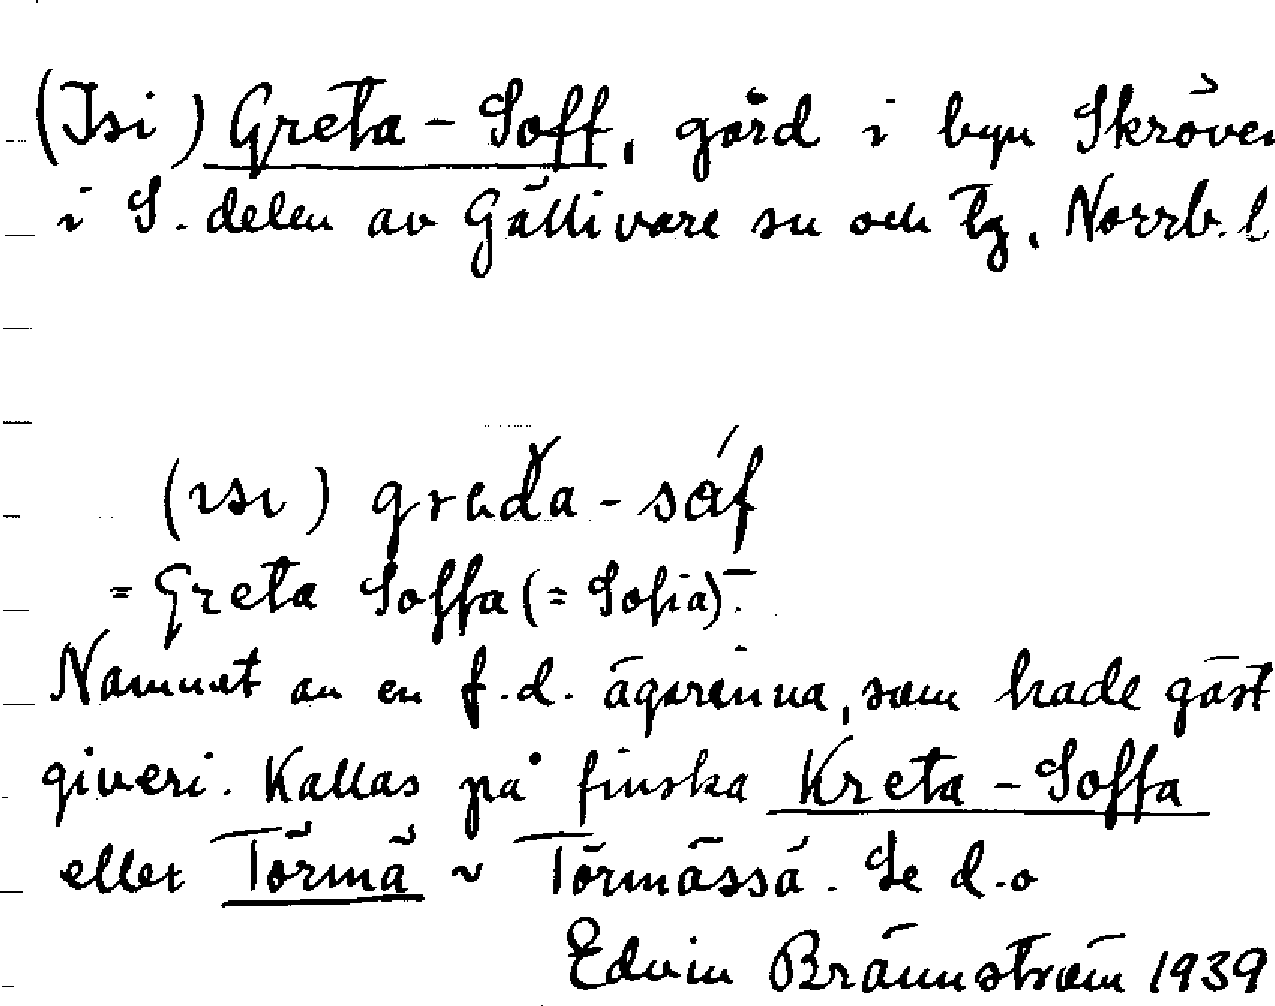 (Isi) Greta-Soff, gård i byn Skröven
i S. delen av Gällivare sn och tg, Norrb. l
(ɪsɪ) gređa-sáf
= Greta Soffa (= Sofia).
Namnet av en f.d. ägarinna, som hade gäst
giveri. Kallas på finska Kreta-Soffa
eller Törmä ~ Törmässä. Se d.o
Edvin Brännström 1939